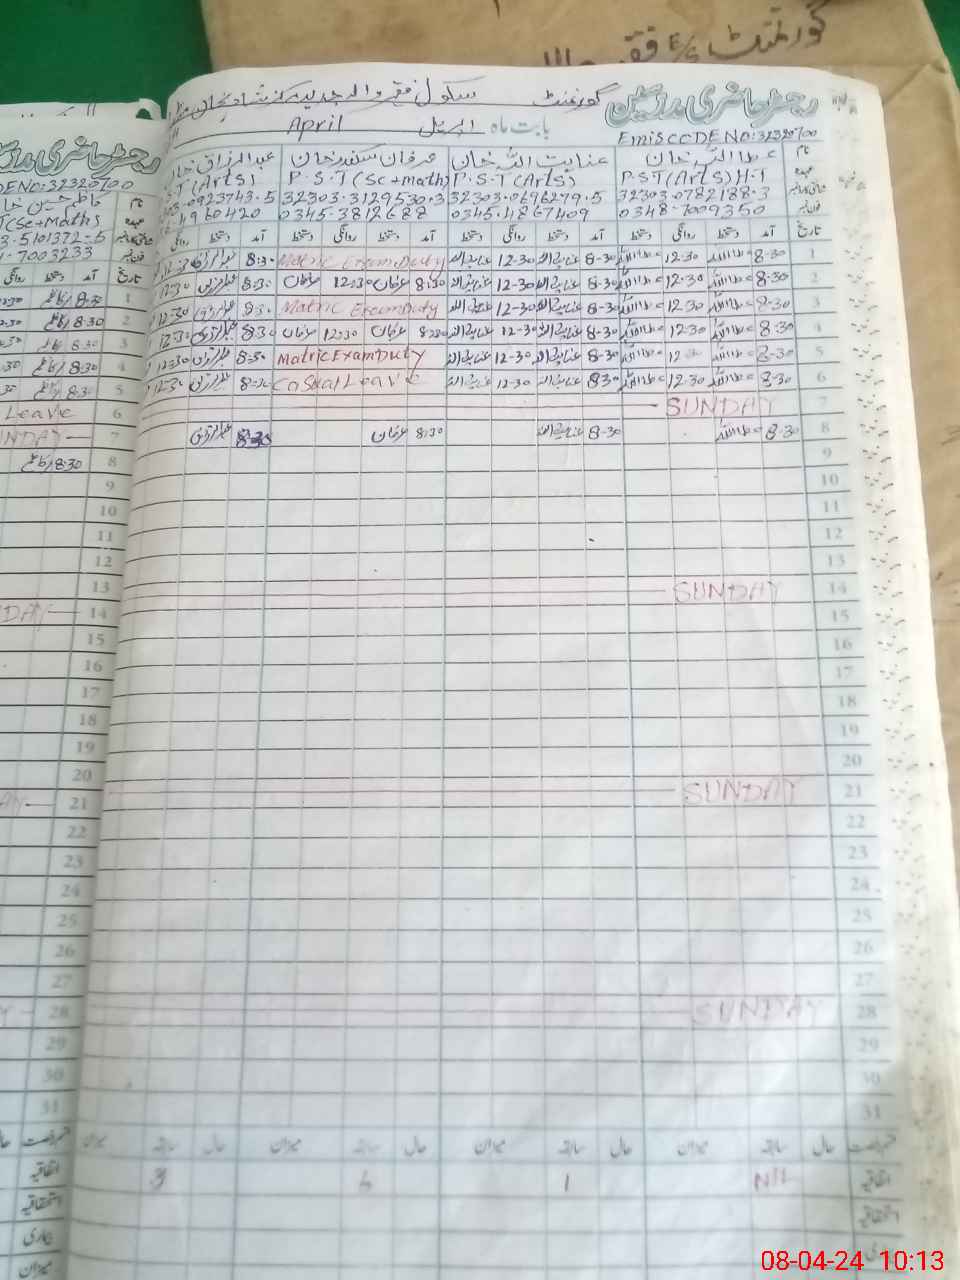 گورنمنٹ
رجسٹر حاضری مدرسین
گورنمنٹ سکول فقیر والہ جدید مرکز شادیخان
بابت ماہ اپریل April
Emis CODE NO: 32320700
نام عطا اللہ خان عنایت اللہ خان عرفان سکندر خان عبدالرزاق خان
عہدہ P.S.T (Arts) H.T P.S.T (Arts) P.S.T (Sc+Math) S.T (Arts)
32303.0782188.3 32303.0696279.5 32303.3129530.3 0923743.5
0348-7009350 0345.4867409 0345-3812688 4960420
تاریخ آمد دستخط روانگی دستخط آمد دستخط روانگی دستخط آمد دستخط روانگی دستخط آمد دستخط روانگی
1 8-30 عطا اللہ 12-30 عطا اللہ 8-30 عنایت اللہ 12-30 عنایت اللہ Matric Exam Duty 8:30 عبدالرزاق 12:30
2 8-30 عطا اللہ 12-30 عطا اللہ 8-30 عنایت اللہ 12-30 عنایت اللہ 8:30 عرفان 12:30 عرفان 8:30 عبدالرزاق 12:30
3 8-30 عطا اللہ 12-30 عطا اللہ 8-30 عنایت اللہ 12-30 عنایت اللہ Matric Exam Duty 8:30 عبدالرزاق 12:30
4 8-30 عطا اللہ 12-30 عطا اللہ 8-30 عنایت اللہ 12-30 عنایت اللہ 8:30 عرفان 12:30 عرفان 8:30 عبدالرزاق 12:30
5 8-30 عطا اللہ 12-30 عطا اللہ 8-30 عنایت اللہ 12-30 عنایت اللہ Matric Exam Duty 8:30 عبدالرزاق 12:30
6 8-30 عطا اللہ 12-30 عطا اللہ 8-30 عنایت اللہ 12-30 عنایت اللہ Casual Leave 8:30 عبدالرزاق 12:30
7 SUNDAY
8 8-30 عطا اللہ 8-30 عنایت اللہ 8:30 عرفان 8:30 عبدالرزاق
9
10
11
12
13
14 SUNDAY
15
16
17
18
19
20
21 SUNDAY
22
23
24
25
26
27
28 SUNDAY
29
30
31
حال سابقہ میزان حال سابقہ میزان حال سابقہ میزان حال سابقہ میزان
اتفاقیہ Nil 1 3
استحقاقیہ
رجسٹر حاضری مدرسین
DE NO: 32320700
نام
عہدہ T (Sc+Math)
3.5101372-5
7003233
تاریخ آمد دستخط روانگی
1 8:30
2 8:30
3 8:30
4 8:30
5 8:30
6 Leave
7 NDAY
8 8:30
9
10
11
12
13
14 DAY
15
16
17
18
19
20
21 AY
22
23
24
25
26
27
28 Y
29
30
31
اتفاقیہ
استحقاقیہ
بیماری
میزان
08-04-24 10:13